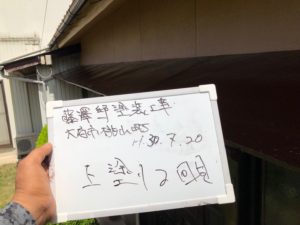 藤澤邸塗装工事
大府市横山町
H.30.7.20
上塗り2回目